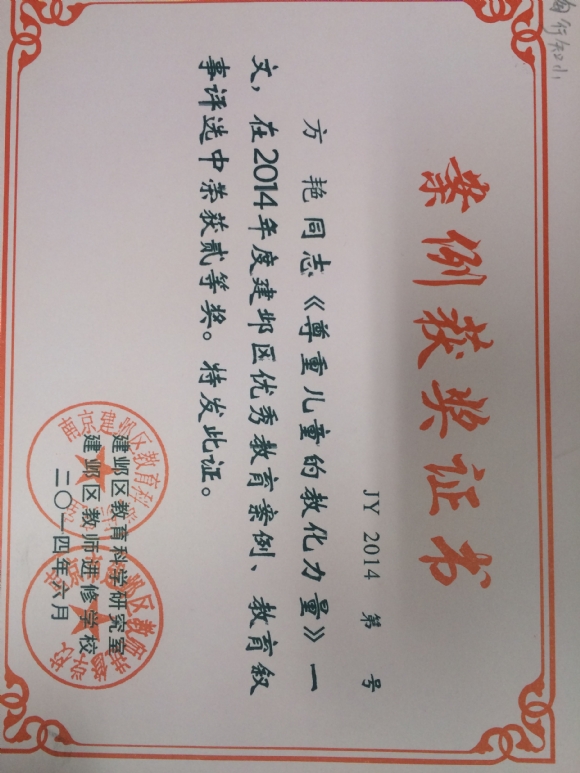 案例获奖证书
JY 2014 第 号
方艳同志《尊重儿童的教化力量》一
文，在2014年度建邺区优秀教育案例、教育叙
事评选中荣获贰等奖。特发此证。
建邺区教育科学研究室
建邺区教师进修学校
二〇一四年六月